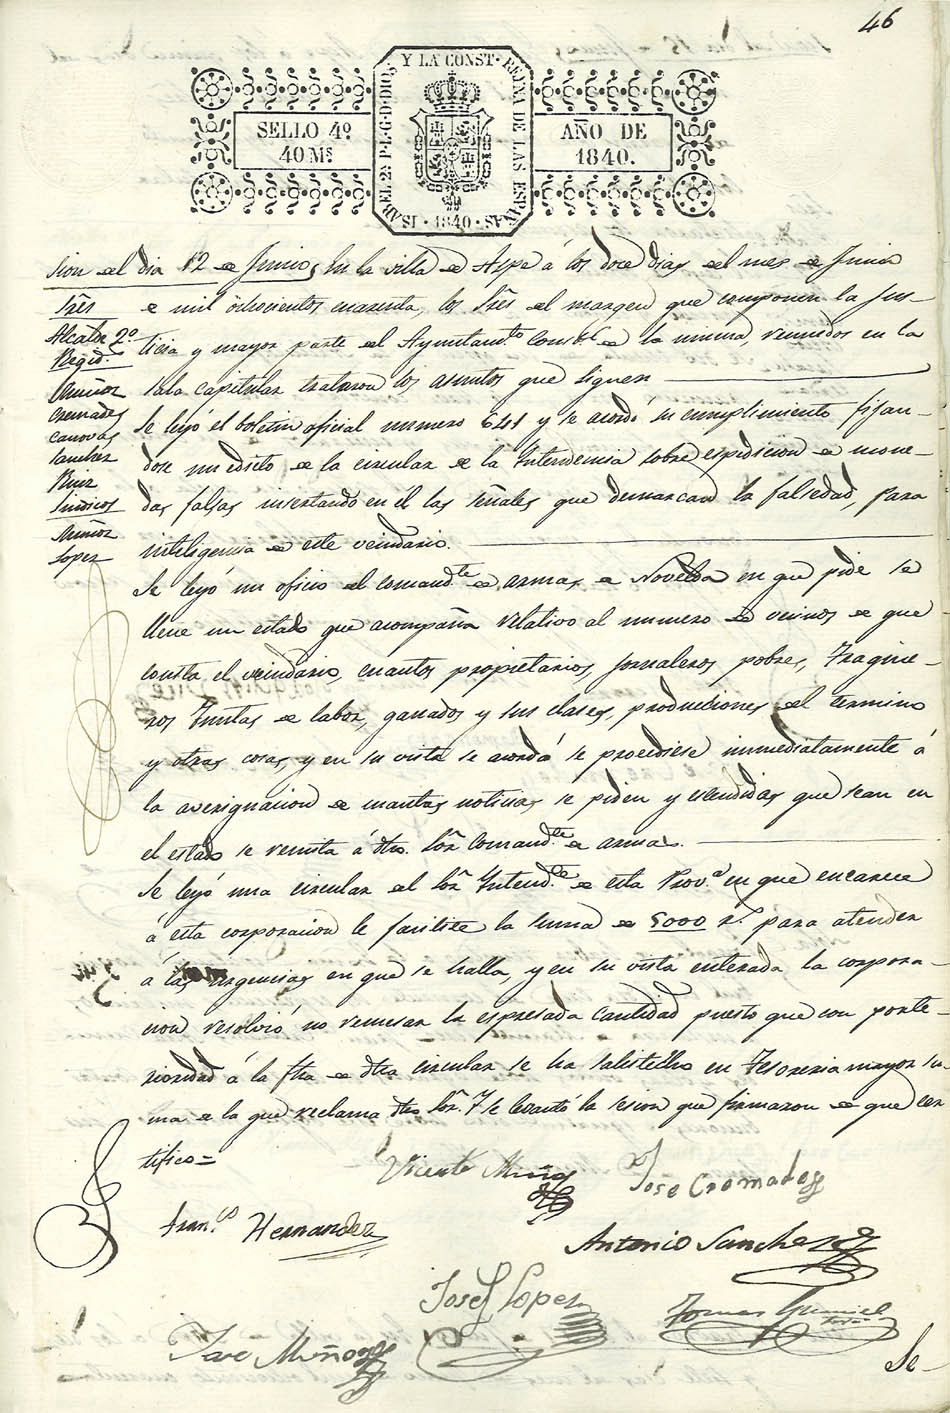 46
ISABEL 2ª P.L.G.D.DIOS Y LA CONST. REYNA DE LAS ESPAÑAS · 1840 ·
SELLO 4º
40 Ms
AÑO DE
1840.
sion del dia 12 de Junio, En la villa de Aspe á los doce dias del mes de Junio
Sres
Alcalde 2º
Regid.s
Muñoz
Cremades
Canovas
Sanchez
Ruiz
Sindicos
Muñoz
Lopez
de mil ochocientos cuarenta, los Sres del margen que componen la Jus-
ticia y mayor parte del Ayuntamto Constl de la misma, reunidos en la
sala capitular trataron los asuntos que siguen
Se leyó el boletin oficial numero 641 y se acordó su cumplimiento fijan-
dose un edicto de la circular de la Intendencia sobre espedicion de mone-
das falsas insertando en él las señales que demarcan la falsedad, para
inteligencia de este vecindario.
Se leyó un oficio del comandte de armas de Novelda en que pide se
llene un estado que acompaña relativo al numero de vecinos de que
consta el vecindario, cuantos propietarios, jornaleros, pobres, Tragine-
ros Yuntas de labor, ganados y sus clases, producciones del termino
y otras cosas, y en su vista se acordó se procediese inmediatamente á
la averiguacion de cuantas noticias se piden y estendidas que sean en
el estado se remita á dho. Sor. Comandte de armas.
Se leyó una circular del Sor. Intendte de esta Prova en que encarece
á esta corporacion le facilite la suma de 5000 rs. para atender
á las urgencias en que se halla, y en su vista enterada la corpora-
cion resolvió no remesar la espresada cantidad puesto que con poste-
rioridad á la fha de dha circular se ha satisfecho en Tesoreria mayor su-
ma de la que reclama dho Sor. Y se levantó la sesion que firmaron de que cer
tifico=
Vicente Muñoz
Jose Cremades
Fran.co Hernandez
Antonio Sanchez
Josef Lopez
Tomas
Jose Muñoz
Se-